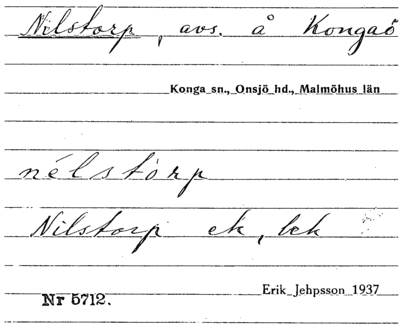 Nilstorp, avs. å Kongaö
Konga sn., Onsjö hd., Malmöhus län
nélstòrp
Nilstorp ek, bek
Erik Jehpsson 1937
Nr 5712.